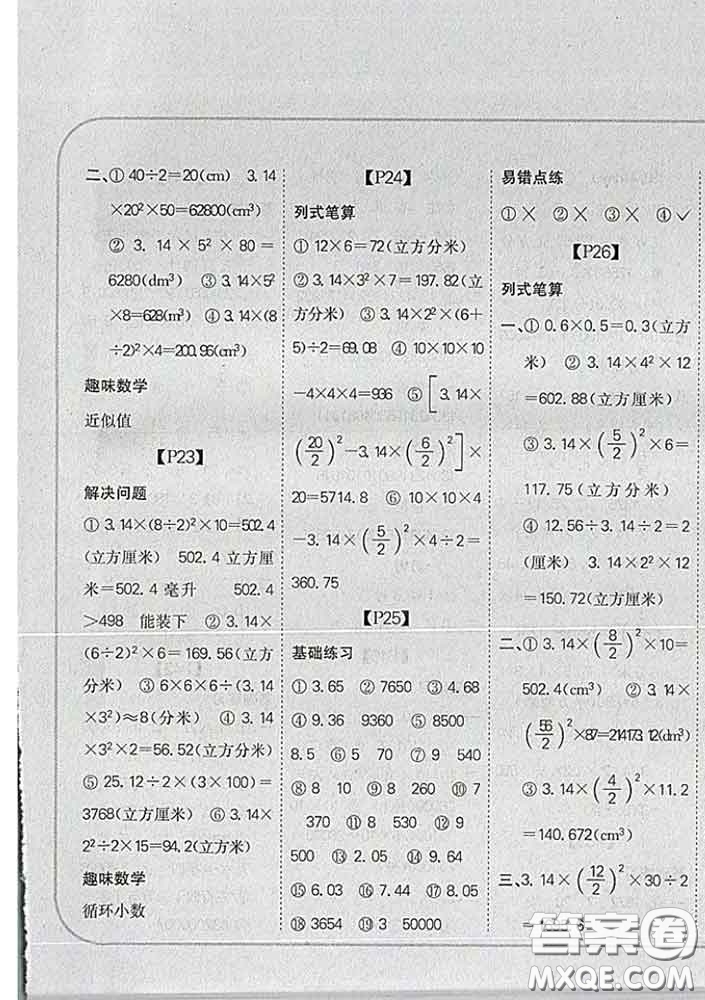 二、① 40÷2=20(cm) 3.14
×20²×50=62800(cm³)
② 3.14×5²×80=
6280(dm³) ③ 3.14×5²
×8=628(m³) ④ 3.14×(8
÷2)²×4=200.96(cm³)
趣味数学
近似值
【P23】
解决问题
① 3.14×(8÷2)²×10=502.4
(立方厘米) 502.4立方厘
米=502.4毫升 502.4
>498 能装下 ② 3.14×
(6÷2)²×6=169.56(立方
分米) ③ 6×6×6÷(3.14
×3²)≈8(分米) ④ 3.14
×3²×2=56.52(立方分米)
⑤ 25.12÷2×(3×100)=
3768(立方厘米) ⑥ 3.14×
2²÷2×15=94.2(立方米)
趣味数学
循环小数
【P24】
列式笔算
① 12×6=72(立方分米)
② 3.14×3²×7=197.82(立
方分米) ③ 3.14×2²×(6+
5)÷2=69.08 ④ 10×10×10
-4×4×4=936 ⑤ [3.14×
(20/2)²-3.14×(6/2)²]×
20=5714.8 ⑥ 10×10×4
-3.14×(5/2)²×4÷2=
360.75
【P25】
基础练习
① 3.65 ② 7650 ③ 4.68
④ 9.36 9360 ⑤ 8500
8.5 ⑥ 5 70 ⑦ 9 540
⑧ 8 10 ⑨ 8 260 ⑩ 7
370 ⑪ 8 530 ⑫ 9
500 ⑬ 2.05 ⑭ 9.64
⑮ 6.03 ⑯ 7.44 ⑰ 8.05
⑱ 3654 ⑲ 3 50000
易错点练
① × ② × ③ × ④ ✓
【P26】
列式笔算
一、① 0.6×0.5=0.3(立方
米) ② 3.14×4²×12
=602.88(立方厘米)
③ 3.14×(5/2)²×6=
117.75(立方分米)
④ 12.56÷3.14÷2=2
(厘米) 3.14×2²×12
=150.72(立方厘米)
二、① 3.14×(8/2)²×10=
502.4(cm³) ② 3.14×
(56/2)²×87=214173.12(dm³)
③ 3.14×(4/2)²×11.2
=140.672(cm³)
三、3.14×(12/2)²×30÷2
答案圈
MXQE.COM